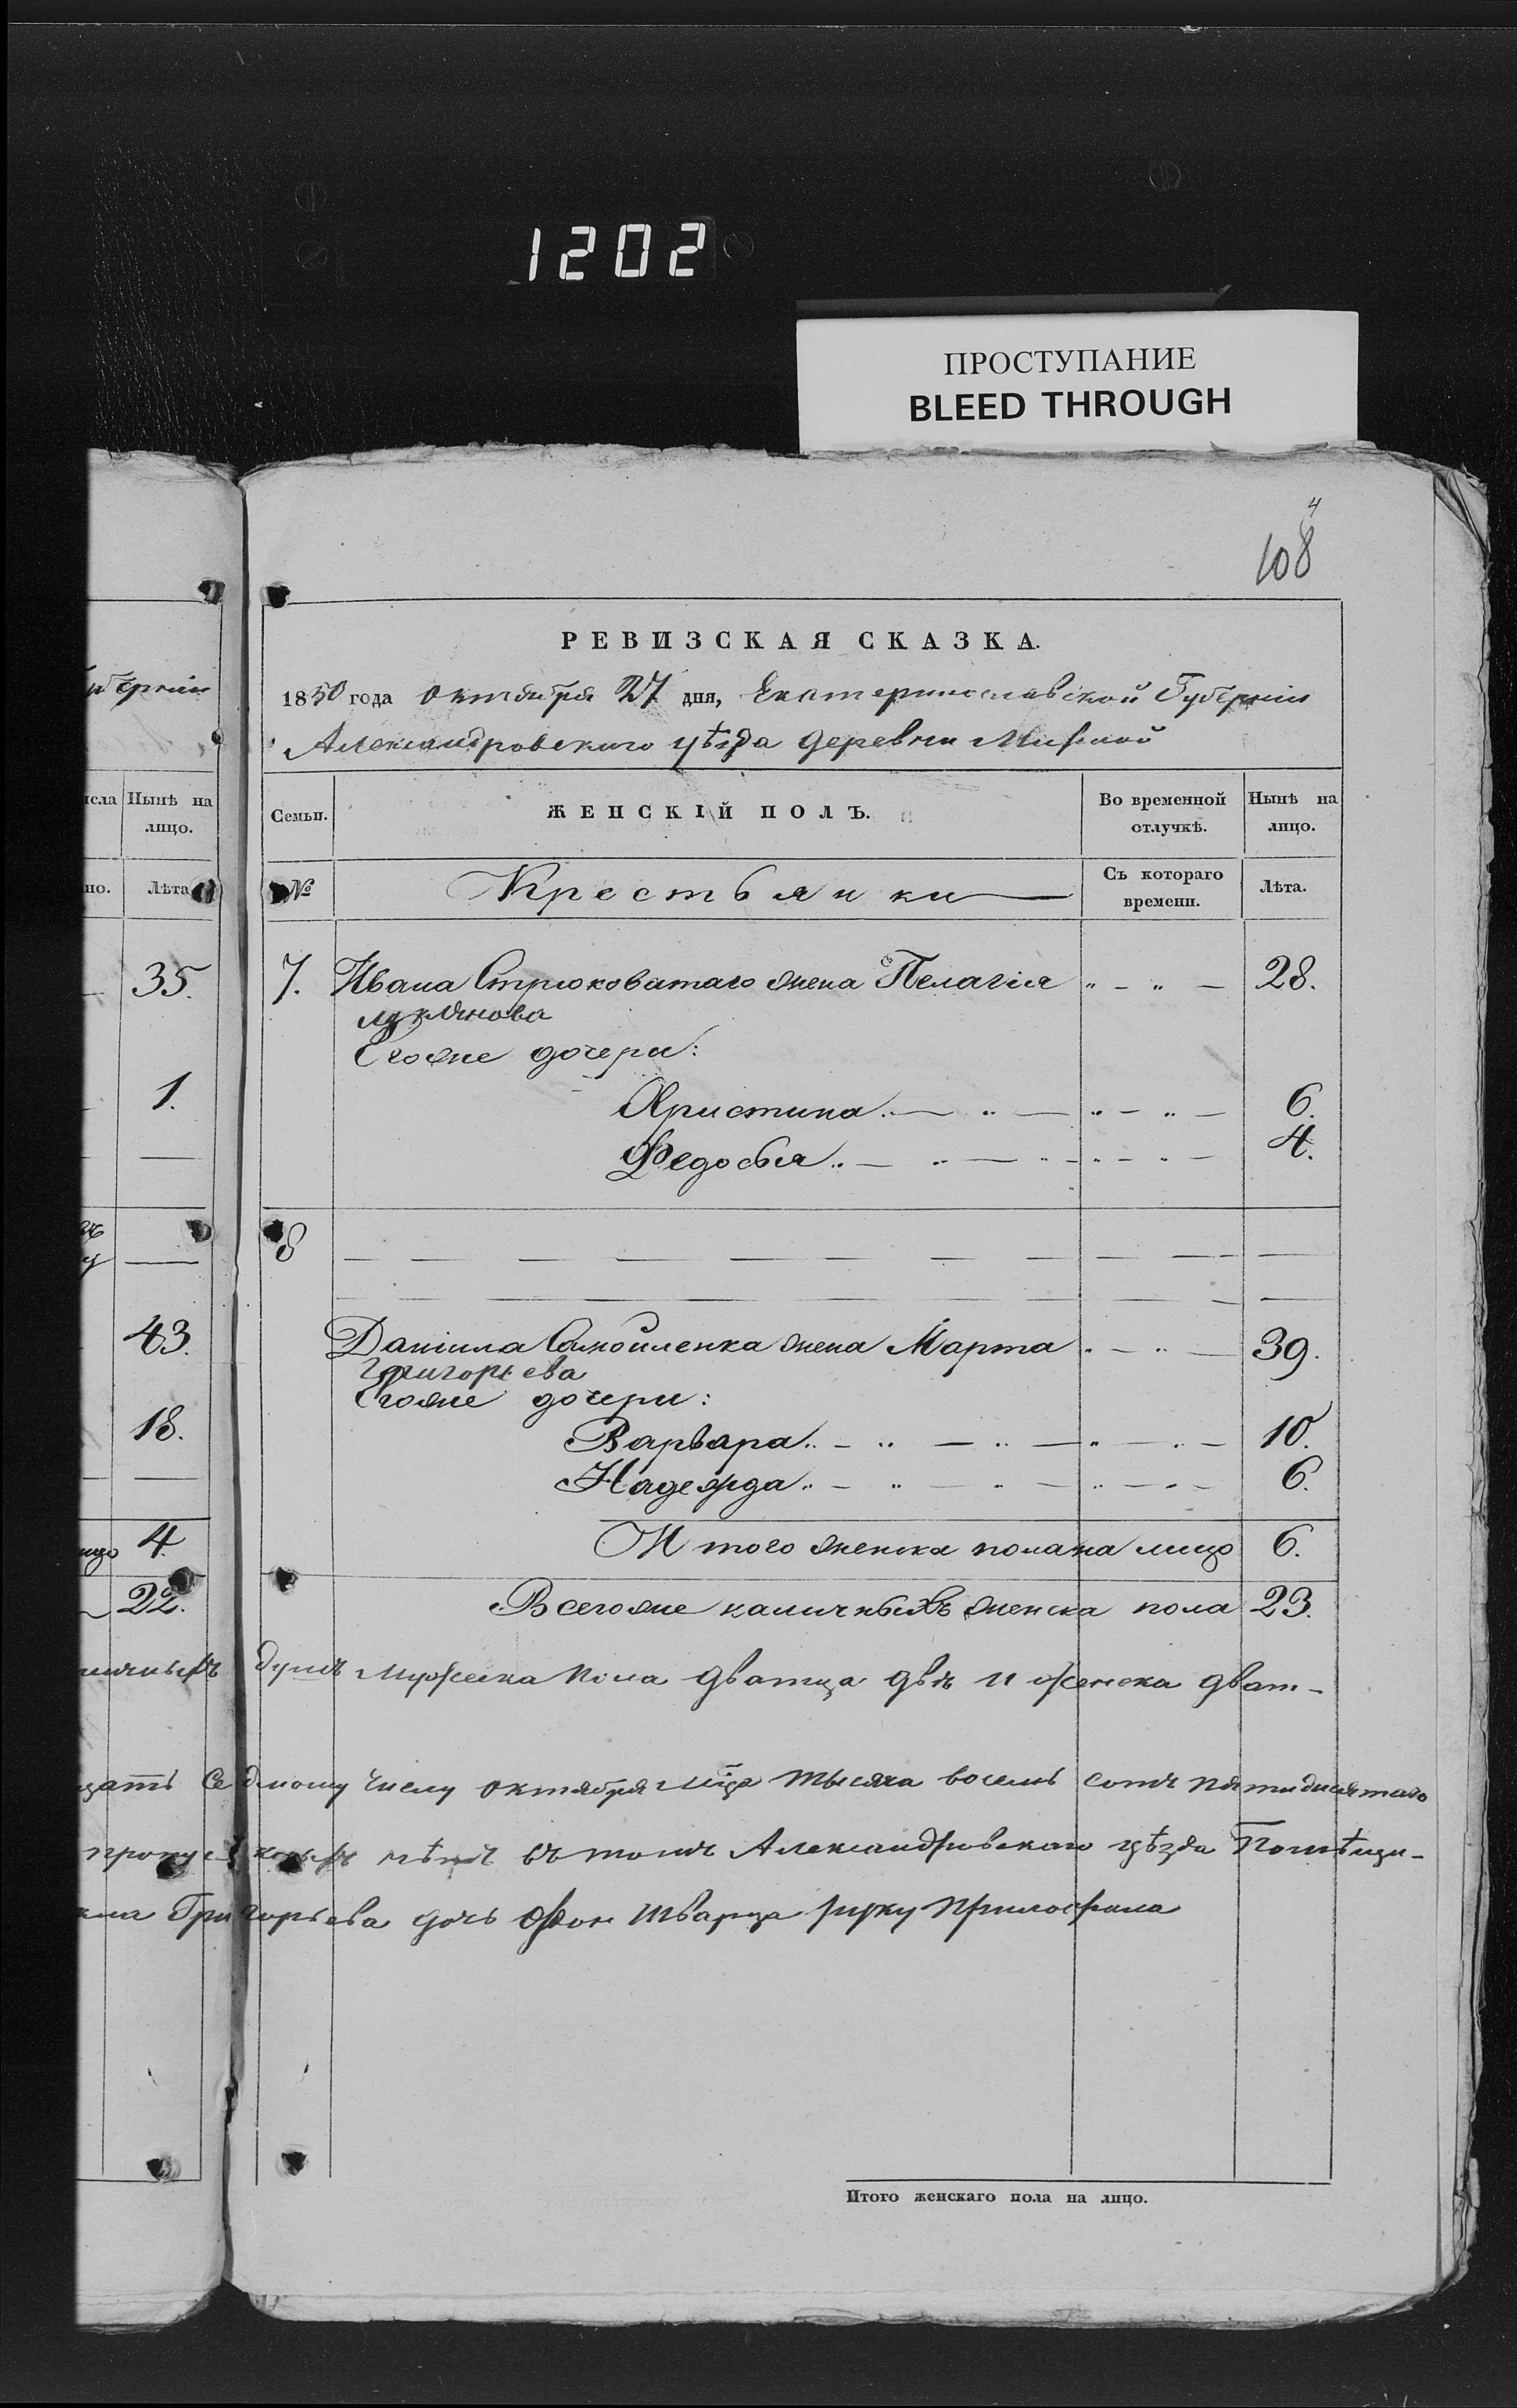 1202
ПРОСТУПАНИЕ
BLEED THROUGH
4
108
РЕВИЗСКАЯ СКАЗКА.
1850 года октября 27 дня, Екатеринославской Губернiи
Александровского уѣзда деревни
Семьи.
ЖЕНСКІЙ ПОЛЪ.
Во временной отлучкѣ.
Нынѣ на лицо.
№
Крестьянки
Съ котораго времени.
Лѣта.
7. Ивана Стрюковатаго жена Пелагiя " — " — 28.
Лукьянова
Егоже дочери:
Христина. — " — " — " — 6.
Федосья.. — " — " — " — " — 4.
8
Данiила Самойленка жена Марта " — " — 39.
Григорьева
Егоже дочери:
Варвара.. — " — " — " — " — 10.
Надежда.. — " — " — " — " — 6.
Итого женска пола на лицо 6.
Всегоже наличныхъ женска пола 23.
душъ мужеска пола дватца двѣ и женска дват-
цать седмому числу октября мца тысяча восемь сотъ пятидесятаго
въ томъ Александровскаго уѣзда Помѣщи-
Григорьева дочь фон Шварца руку приложила
Итого женскаго пола на лицо.
губернiи
Нынѣ на лицо.
Лѣта
35.
1.
43.
18.
4.
22.